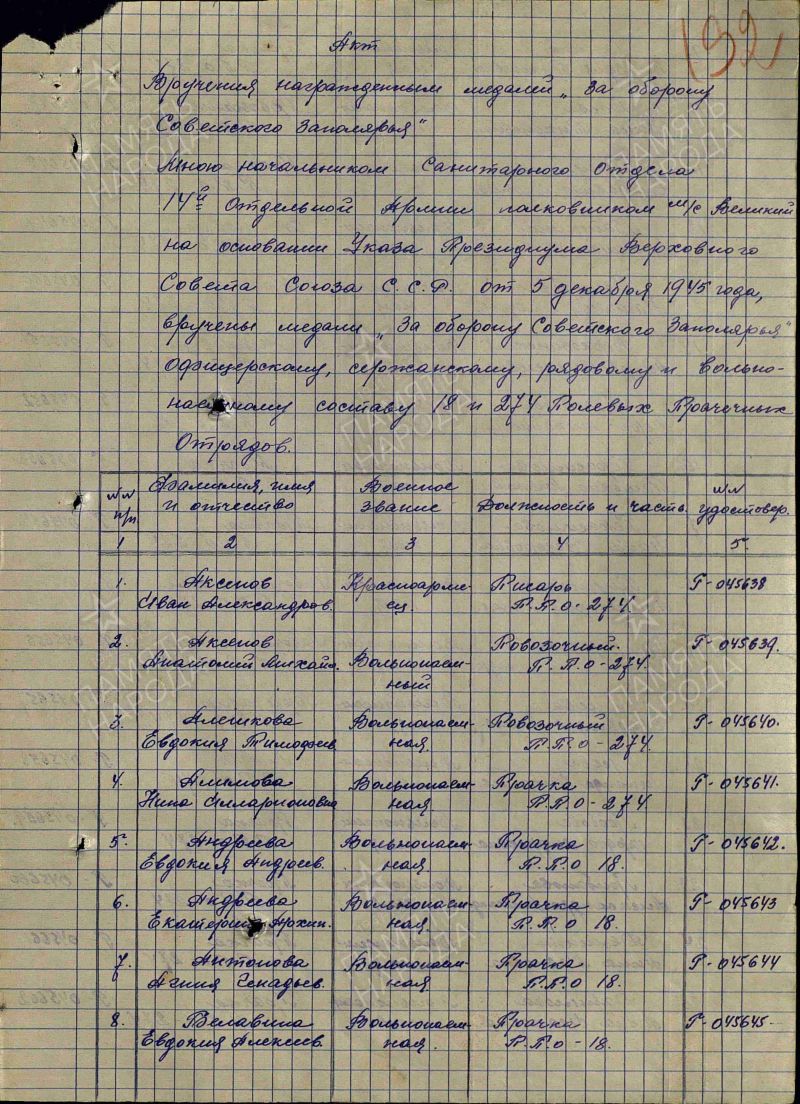 192
Акт
Вручения награжденным медалей „За оборону
Советского Заполярья"
Мною начальником Санитарного Отдела
14й Отдельной Армии полковником м/с Великий
на основании Указа Президиума Верховного
Совета Союза С.С.Р. от 5 декабря 1945 года,
вручены медали „За оборону Советского Заполярья"
Офицерскому, сержанскому, рядовому и вольно-
наемному составу 18 и 274 Полевых Прачечных
Отрядов.
№№ п/п | Фамилия, имя и отчество | Военное звание | Должность и часть | №№ удостовер.
1 | 2 | 3 | 4 | 5.
1. Аксенов Красноарме- Писарь Г-045638
Иван Александров. ец. П.П.О-274.
2. Аксенов Повозочный. Г-045639.
Анатолий Михайл. Вольнонаем- П.П.О-274.
ный
3. Алешкова Вольнонаем- Повозочный Г-045640.
Евдокия Тимофеев. ная. П.П.О-274.
4. Алимова Вольнонаем- Прачка Г-045641.
Нина Илларионовна ная П.П.О-274
5. Андреева Вольнонаем- Прачка Г-045642.
Евдокия Андреев. ная. П.П.О 18.
6. Андреева Вольнонаем- Прачка Г-045643
Екатерина Архип. ная. П.П.О 18.
7. Антонова Вольнонаем- Прачка Г-045644
Агния Генадьев. ная. П.П.О 18.
8. Белавина Вольнонаем- Прачка Г-045645.
Евдокия Алексеев. ная. П.П.О-18.
ПАМЯТЬ
НАРОДА